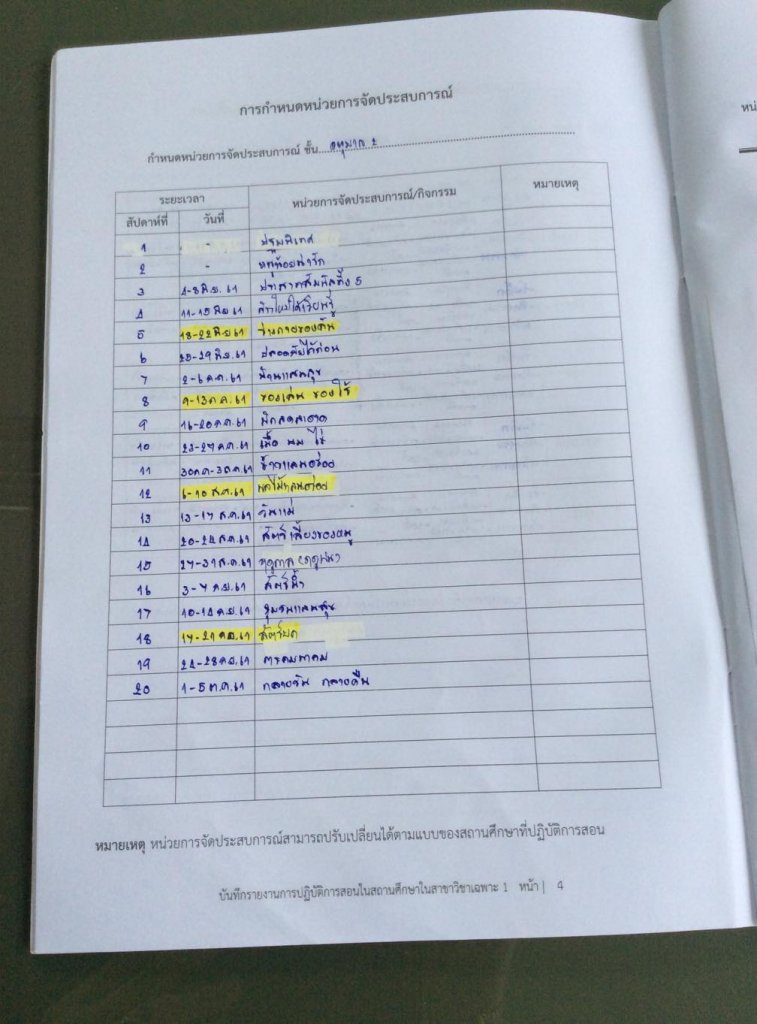 การกำหนดหน่วยการจัดประสบการณ์
กำหนดหน่วยการจัดประสบการณ์ ชั้น....อนุบาล 2
ระยะเวลา หน่วยการจัดประสบการณ์/กิจกรรม หมายเหตุ
สัปดาห์ที่ วันที่
1 - ปฐมนิเทศ
2 - หนูน้อยน่ารัก
3 4-8 มิ.ย. 61 ประสาทสัมผัสทั้ง 5
4 11-15 มิ.ย 61
5 18-22 มิ.ย 61 ร่างกายของฉัน
6 25-29 มิ.ย. 61 ปลอดภัยไว้ก่อน
7 2-6 ก.ค. 61 บ้านแสนสุข
8 9-13 ก.ค. 61 ของเล่น ของใช้
9 16-20 ก.ค. 61 ผักสดสะอาด
10 23-27 ก.ค. 61 เนื้อ นม ไข่
11 30 ก.ค.-3 ส.ค. 61 ข้าวแสนอร่อย
12 6-10 ส.ค. 61 ผลไม้แสนอร่อย
13 13-17 ส.ค. 61 วันแม่
14 20-24 ส.ค. 61 สัตว์เลี้ยงของหนู
15 27-31 ส.ค. 61 ฤดูกาล (ฤดูฝน)
16 3-7 ก.ย. 61 สัตว์น้ำ
17 10-14 ก.ย. 61 ชุมชนแสนสุข
18 17-21 ก.ย. 61
19 24-28 ก.ย. 61 การคมนาคม
20 1-5 ต.ค. 61 กลางวัน กลางคืน
หมายเหตุ หน่วยการจัดประสบการณ์สามารถปรับเปลี่ยนได้ตามแบบของสถานศึกษาที่ปฏิบัติการสอน
บันทึกรายงานการปฏิบัติการสอนในสถานศึกษาในสาขาวิชาเฉพาะ 1 หน้า | 4